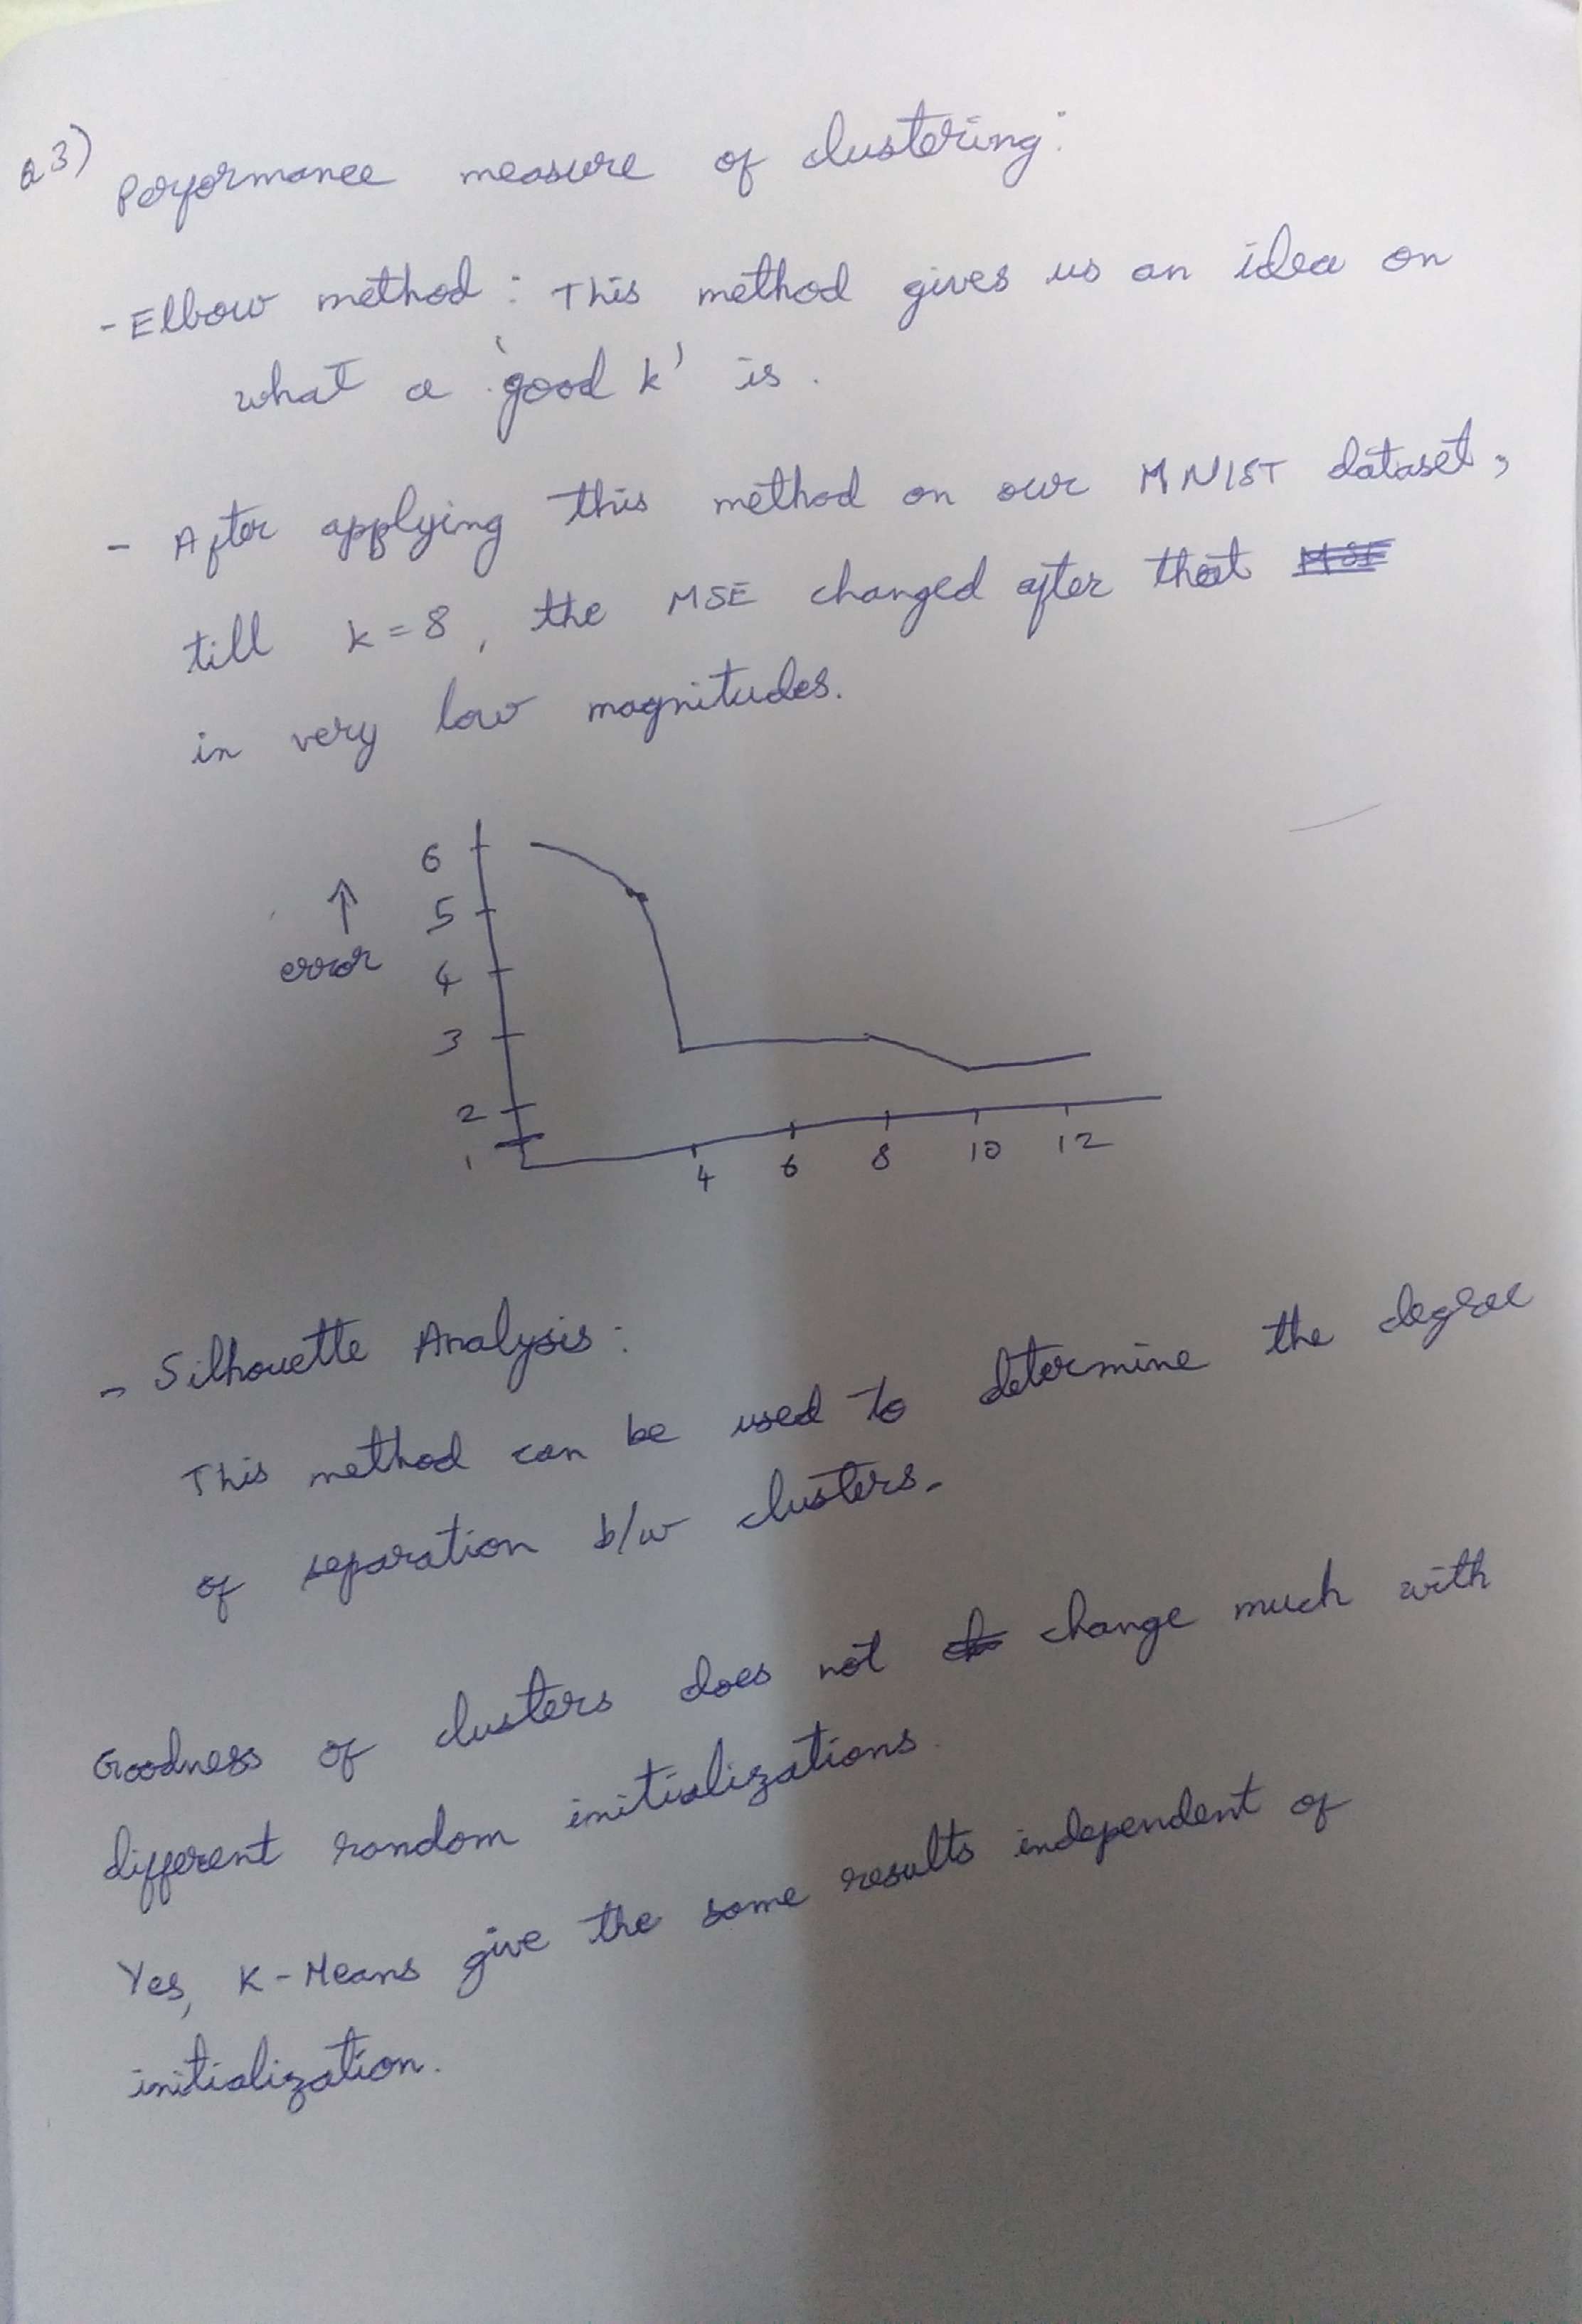 Q3) Performance measure of clustering:
- Elbow method : This method gives us an idea on
what a 'good k' is.
- After applying this method on our MNIST dataset,
till k = 8, the MSE changed after that
in very low magnitudes.
6
↑ 5
error 4
3
2
1
4 6 8 10 12
- Silhouette Analysis:
This method can be used to determine the degree
of separation b/w clusters.
Goodness of clusters does not change much with
different random initializations.
Yes, K-Means give the same results independent of
initialization.